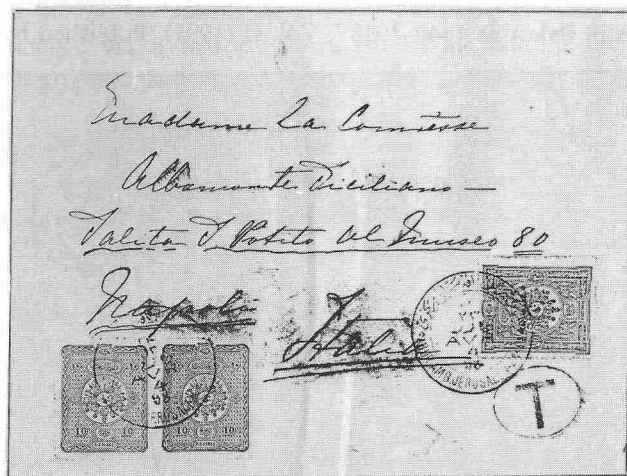 Madame La Comtesse
Albamonte Siciliano —
Salita S Potito al Museo 80
Napoli
Italie
10 10
10 10
T